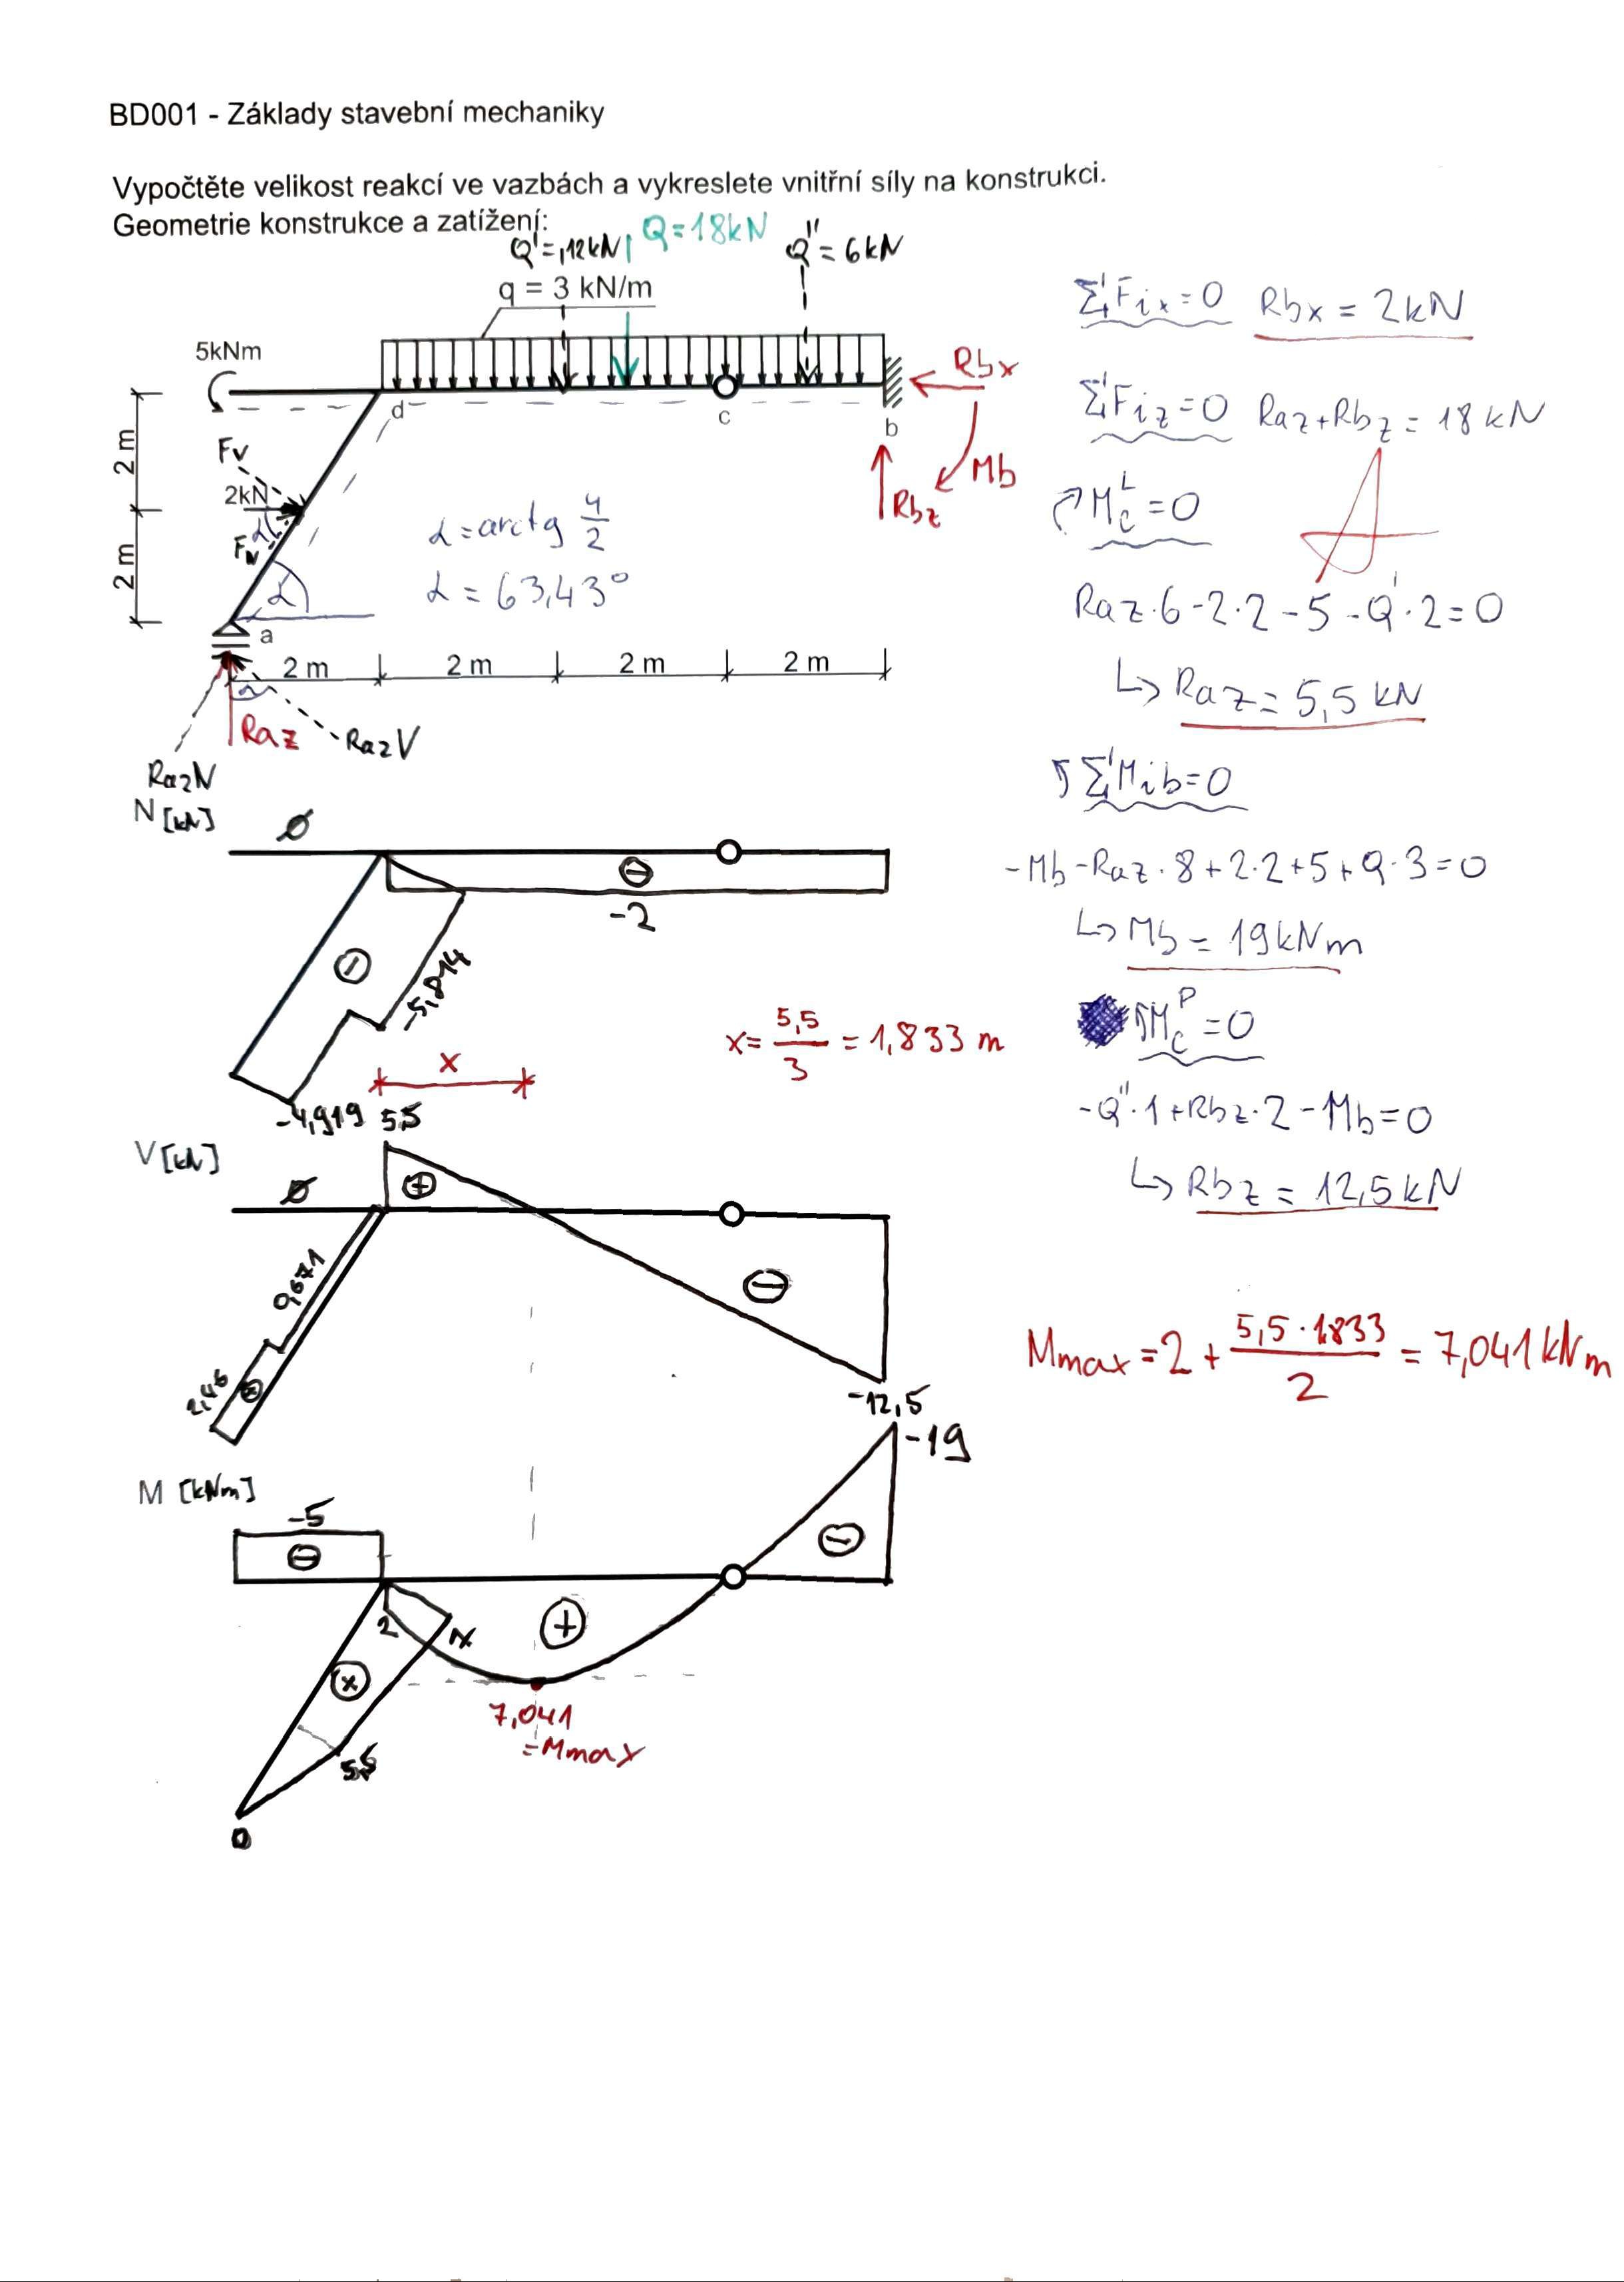 BD001 - Základy stavební mechaniky
Vypočtěte velikost reakcí ve vazbách a vykreslete vnitřní síly na konstrukci.
Geometrie konstrukce a zatížení:
Q' = 12kN
Q = 18kN
Q'' = 6kN
q = 3 kN/m
5kNm
d
c
b
Rbx
Mb
Rbz
2 m
2 m
Fv
2kN
α
FN
α
a
α = arctg 4/2
α = 63,43°
2 m
2 m
2 m
2 m
α
Raz
RazV
RazN
ΣFix = 0 Rbx = 2kN
ΣFiz = 0 Raz + Rbz = 18 kN
M_c^L = 0
Raz·6 - 2·2 - 5 - Q'·2 = 0
↳ Raz = 5,5 kN
ΣMib = 0
-Mb - Raz·8 + 2·2 + 5 + Q·3 = 0
↳ Mb = 19kNm
M_c^P = 0
-Q''·1 + Rbz·2 - Mb = 0
↳ Rbz = 12,5kN
N [kN]
ø
⊖
-2
⊖
-5,814
-4,919
x
x = 5,5/3 = 1,833 m
V [kN]
5,5
ø
⊕
⊖
0,671
2,46
⊕
-12,5
Mmax = 2 + 5,5·1,833/2 = 7,041 kNm
M [kNm]
-5
⊖
-19
⊖
⊕
2
⊕
7,041
= Mmax
0